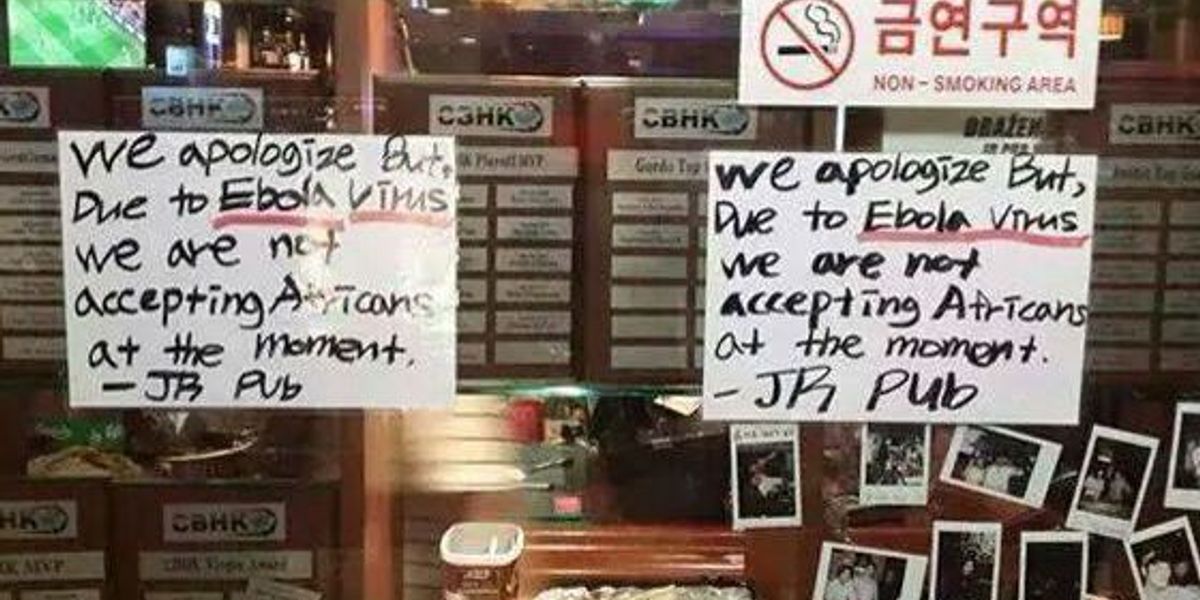 금연구역
NON - SMOKING AREA
CBHK
CBHK
CBHK
CBHK
We apologize But,
Due to Ebola Virus
we are not
accepting Africans
at the moment.
- JR PUb
we apologize But,
Due to Ebola Virus
we are not
accepting Africans
at the moment.
- JR PUb
CBHK